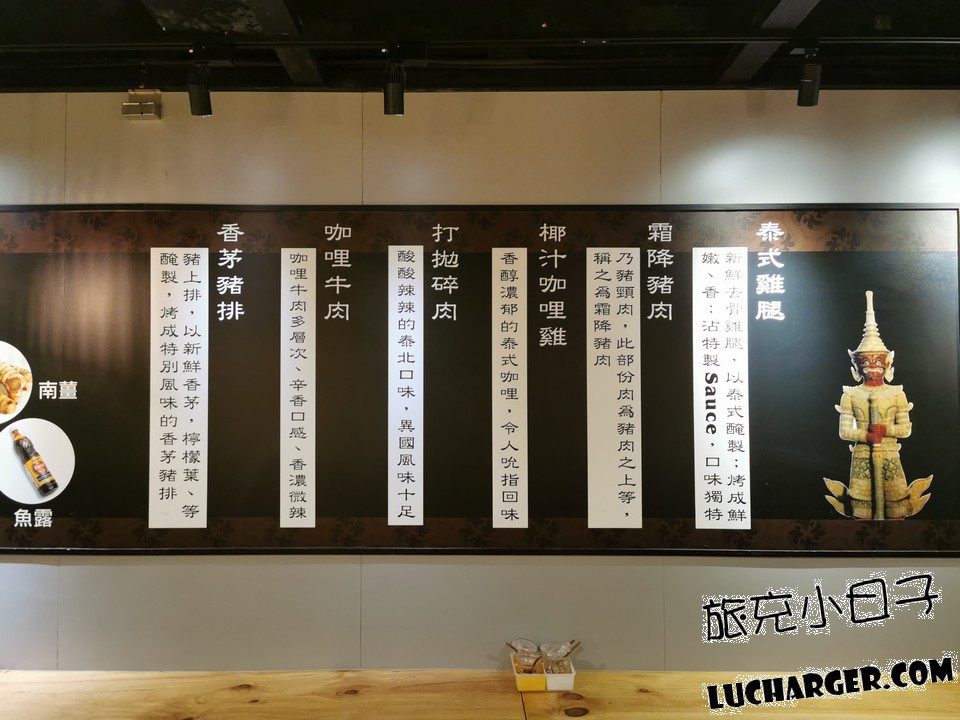 泰式雞腿
新鮮去骨雞腿，以泰式醃製；烤成鮮
嫩、香；沾特製Sauce，口味獨特
霜降豬肉
乃豬頸肉，此部份肉為豬肉之上等，
稱之為霜降豬肉
椰汁咖哩雞
香醇濃郁的泰式咖哩，令人吮指回味
打拋碎肉
酸酸辣辣的泰北口味，異國風味十足
咖哩牛肉
咖哩牛肉多層次、辛香口感、香濃微辣
香茅豬排
豬上排，以新鮮香茅，檸檬葉、等
醃製，烤成特別風味的香茅豬排
南薑
魚露
旅充小日子
LUCHARGER.COM